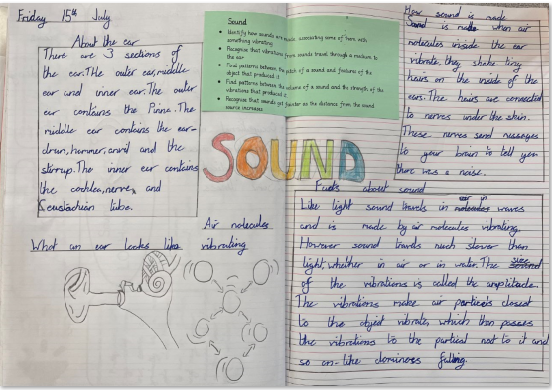 Friday 15th July
About the ear
There are 3 sections of
the ear. THe outer ear, middle
ear and inner ear. The outer
ear contains the Pinna. The
middle ear contains the ear-
drum, hammer, anvil and the
stirrup. The inner ear contains
the cochlea, nerve, and
Eeustachian tube.
What an ear looks like
Air molecules
vibrating
Sound
Identify how sounds are made, associating some of them with
something vibrating
Recognise that vibrations from sounds travel through a medium to
the ear
Find patterns between the pitch of a sound and features of the
object that produced it
Find patterns between the volume of a sound and the strength of the
vibrations that produced it.
Recognise that sounds get fainter as the distance from the sound
source increases
SOUND
How sound is made
Sound is made when air
molecules inside the ear
vibrate, they shake tiny
hairs on the inside of the
ears. The hairs are connected
to nerves under the skin.
These nerves send messages
to your brain to tell you
there was a noise.
Facts about sound
Like light sound travels in waves
and is made by air molecules vibrating.
However sound travels much slower than
light, whether in air or in water. The size
of the vibrations is called the amplitude.
The vibrations make air particles closest
to the object vibrate, which then passes
the vibrations to the partical next to it and
so on-like dominoes falling.